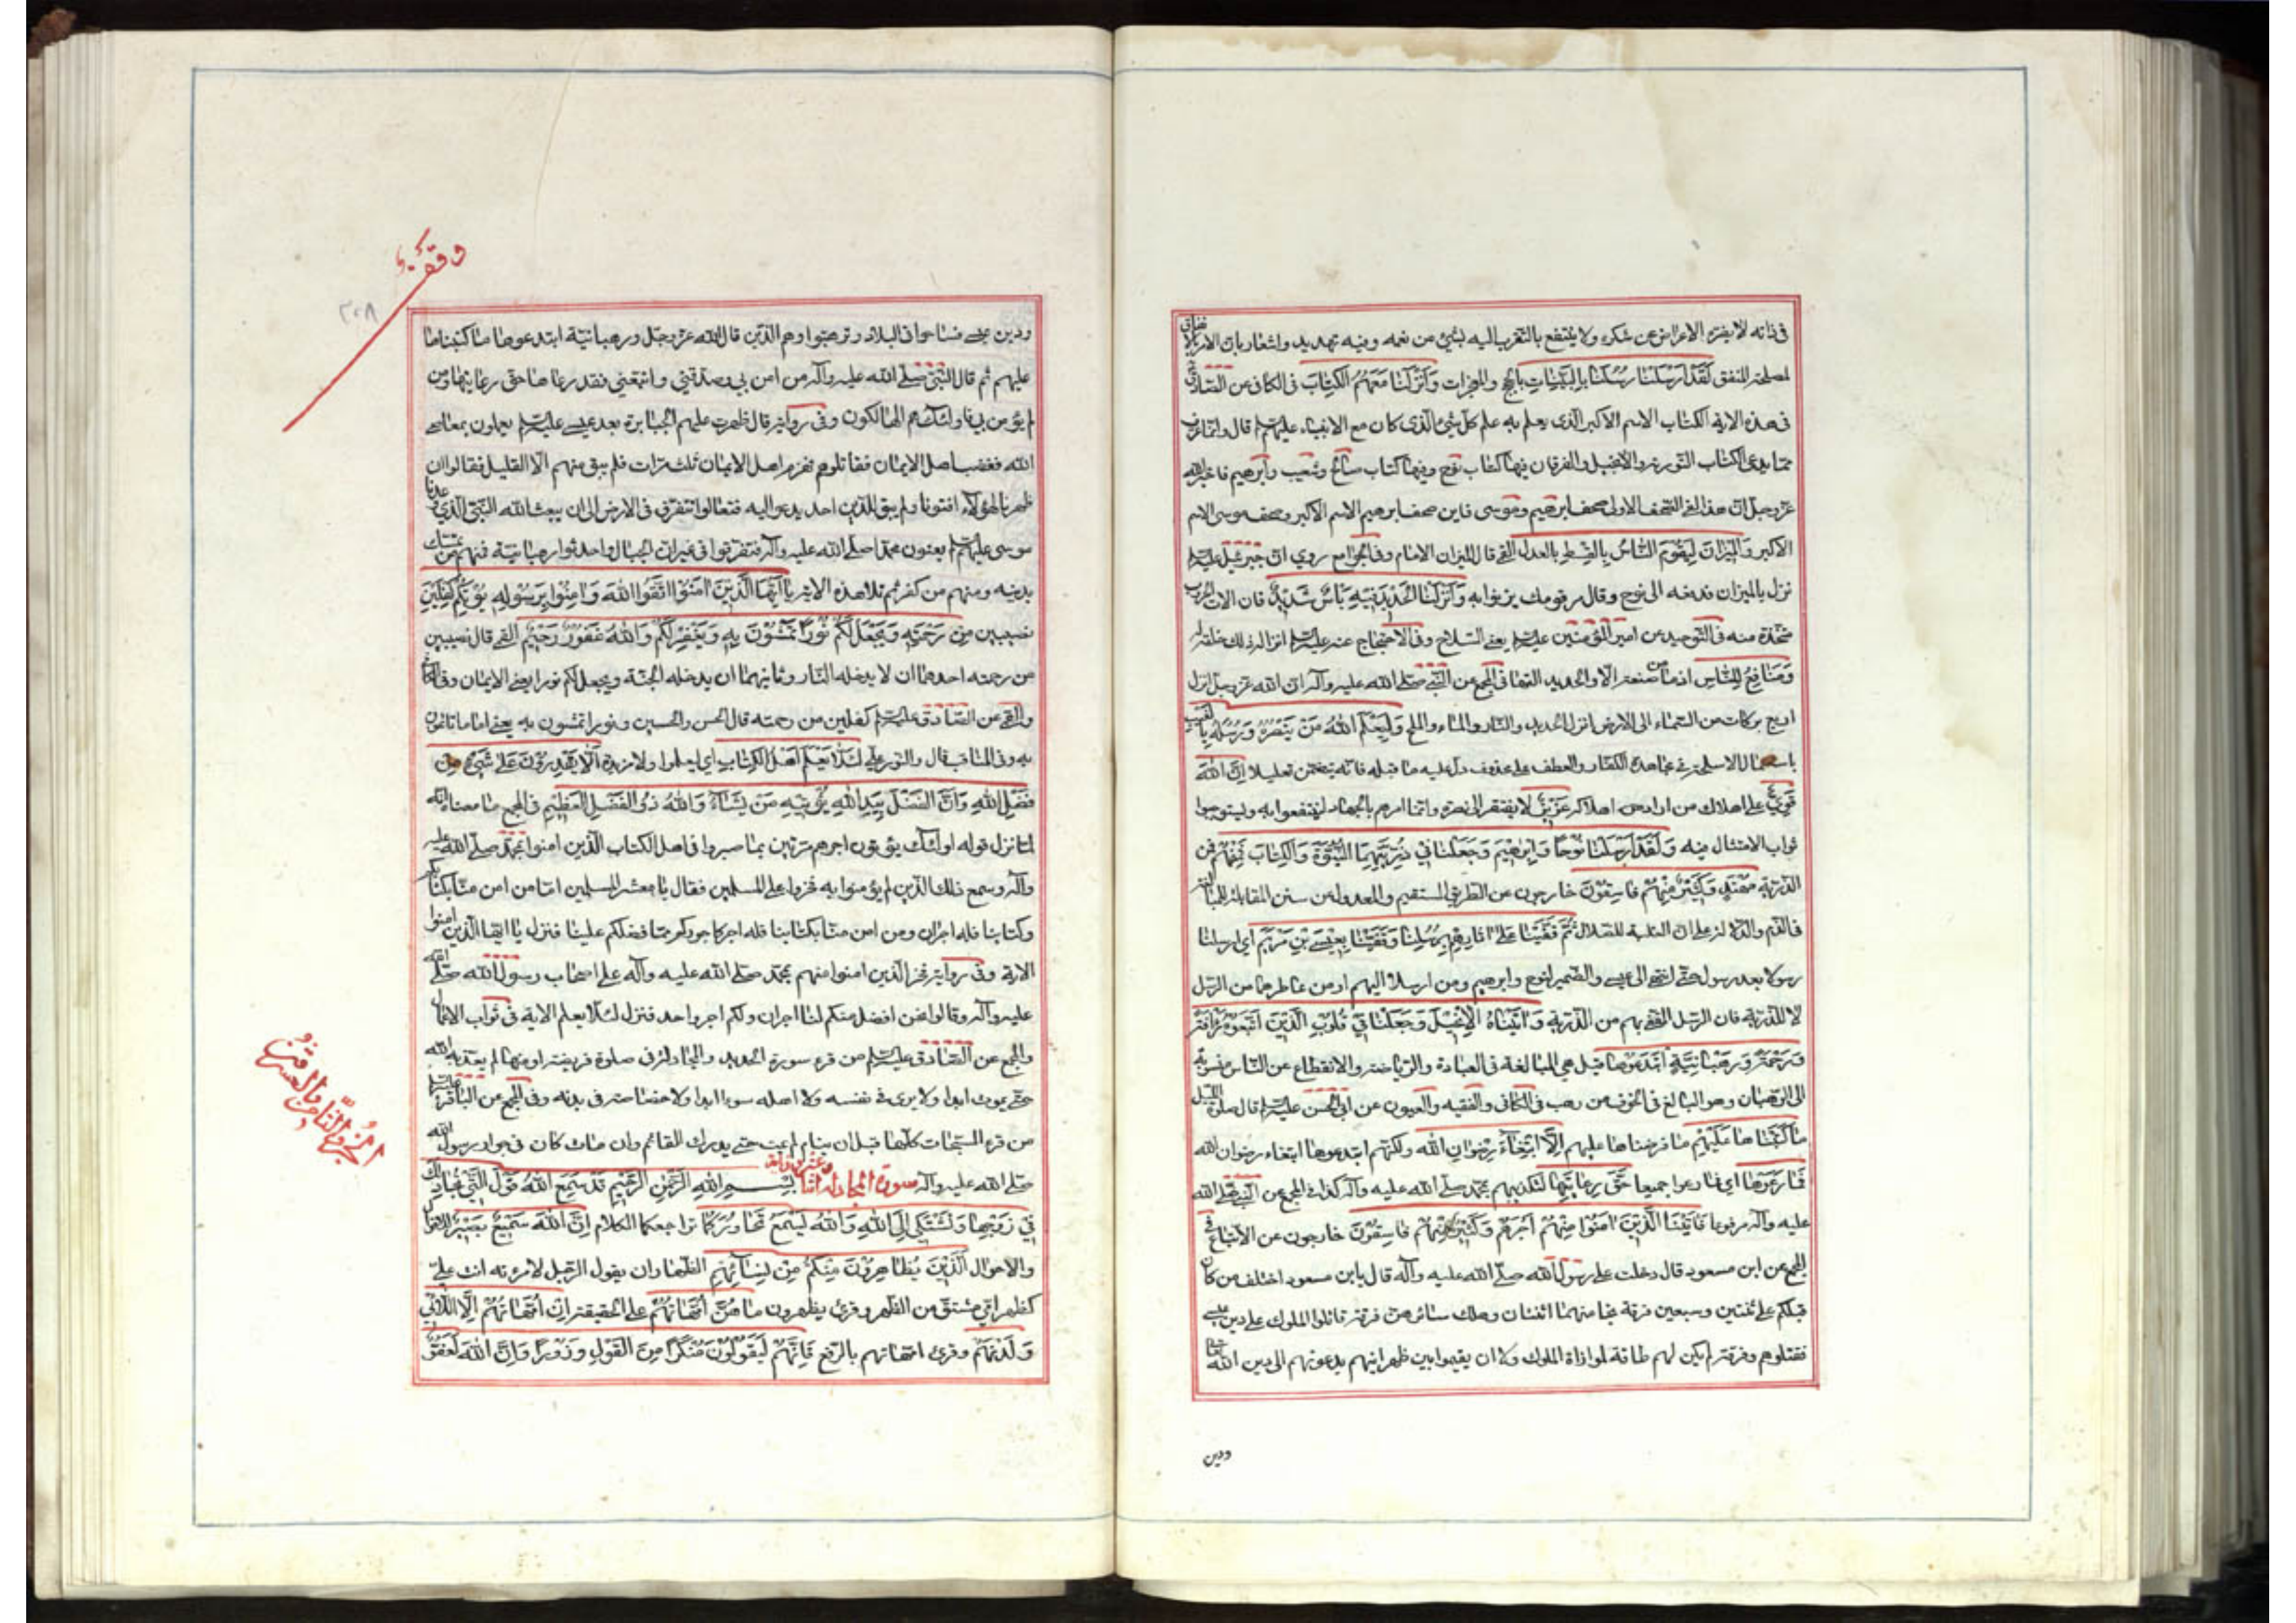 في ذاته لا يضره الاعراض عن شكره ولا ينتفع بالتقرب اليه بشئ من نعمه وفيه تهديد واشعار بان الامر بالانفاق
لمصلحة المنفق لَقَدْ اَرْسَلْنَا رُسُلَنَا بِالْبَيِّنَاتِ بالحجج والمعجزات وَاَنْزَلْنَا مَعَهُمُ الْكِتَابَ في الكافي عن الصادق
في هذه الاية الكتاب الاسم الاكبر الذي يعلم به علم كل شئ الذي كان مع الانبياء عليهم السلم قال وانما عرف
مما يدعى الكتاب التورية والانجيل والفرقان فيها كتاب نوح وفيها كتاب صالح وشعيب وابرهيم فاخبر الله
عز وجل ان هذا لفي الصحف الاولى صحف ابرهيم وموسى فاين صحف ابرهيم الاسم الاكبر وصحف موسى الاسم
الاكبر وَالْمِيزَانَ لِيَقُومَ النَّاسُ بِالْقِسْطِ بالعدل القمي قال الميزان الامام وفي الجوامع روي ان جبرئيل عليه السلم
نزل بالميزان فدفعه الى نوح وقال مر قومك يزنوا به وَاَنْزَلْنَا الْحَدِيدَ فِيهِ بَأْسٌ شَدِيدٌ فان الات الحرب
متخذة منه في التوحيد عن امير المؤمنين عليه السلم يعني السلاح وفي الاحتجاج عنه عليه السلم انزاله ذلك خلقه له
وَمَنَافِعُ لِلنَّاسِ اذ ما من صنعة الا والحديد التها في المجمع عن النبي صلى الله عليه وآله ان الله عز وجل انزل
اربع بركات من السماء الى الارض انزل الحديد والنار والماء والملح وَلِيَعْلَمَ اللهُ مَنْ يَنْصُرُهُ وَرُسُلَهُ بِالْغَيْبِ
باستعمال الاسلحة في مجاهدة الكفار والعطف على محذوف دل عليه ما قبله فانه يتضمن تعليلا اِنَّ اللهَ
قَوِيٌّ على اهلاك من اراد اهلاكه عَزِيزٌ لا يفتقر الى نصرة وانما امرهم بالجهاد لينتفعوا به وليستوجبوا
ثواب الامتثال فيه وَلَقَدْ اَرْسَلْنَا نُوحًا وَاِبْرٰهِيمَ وَجَعَلْنَا فِي ذُرِّيَّتِهِمَا النُّبُوَّةَ وَالْكِتَابَ فَمِنْهُمْ فمن
الذرية مُهْتَدٍ وَكَثِيرٌ مِنْهُمْ فَاسِقُونَ خارجون عن الطريق المستقيم والعدول عن سنن المقابلة للمبالغة
في الذم والدلالة على ان الغلبة للضلال ثُمَّ قَفَّيْنَا عَلَى اٰثَارِهِمْ بِرُسُلِنَا وَقَفَّيْنَا بِعِيسَى بْنِ مَرْيَمَ اي ارسلنا
رسولا بعد رسول حتى انتهى الى عيسى والضمير لنوح وابرهيم ومن ارسلا اليهم او من عاصرهما من الرسل
لا للذرية فان الرسل المقفى بهم من الذرية وَاٰتَيْنَاهُ الْاِنْجِيلَ وَجَعَلْنَا فِي قُلُوبِ الَّذِينَ اتَّبَعُوهُ رَأْفَةً
وَرَحْمَةً وَرَهْبَانِيَّةً ابْتَدَعُوهَا قيل هي المبالغة في العبادة والرياضة والانقطاع عن الناس منسوبة
الى الرهبان وهو المبالغ في الخوف من رهب في الكافي والفقيه والعيون عن ابي الحسن عليه السلم قال صلوة الليل
مَا كَتَبْنَاهَا عَلَيْهِمْ ما فرضناها عليهم اِلَّا ابْتِغَاءَ رِضْوَانِ اللهِ ولكنهم ابتدعوها ابتغاء رضوان الله
فَمَا رَعَوْهَا اي فما رعوا جميعا حَقَّ رِعَايَتِهَا لتكذيبهم بمحمد صلى الله عليه وآله كذا في المجمع عن النبي صلى الله
عليه وآله مرفوعا فَاٰتَيْنَا الَّذِينَ اٰمَنُوا مِنْهُمْ اَجْرَهُمْ وَكَثِيرٌ مِنْهُمْ فَاسِقُونَ خارجون عن الاتباع في
المجمع عن ابن مسعود قال دخلت على رسول الله صلى الله عليه وآله قال يابن مسعود اختلف من كان
قبلكم على ثنتين وسبعين فرقة نجا منهما اثنتان وهلك سائرهن فرقة قاتلوا الملوك على دين عيسى
فقتلوهم وفرقة لم يكن لهم طاقة لموازاة الملوك ولا ان يقيموا بين ظهرانيهم يدعونهم الى دين الله تعالى
ودين
وقف
٣٠٨
ودين عيسى فساحوا في البلاد وترهبوا وهم الذين قال الله عز وجل ورهبانية ابتدعوها ما كتبناها
عليهم ثم قال النبي صلى الله عليه وآله من امن بي وصدقني واتبعني فقد رعاها حق رعايتها ومن
لم يؤمن بي فاولئك هم الهالكون وفي رواية قال ظهرت عليهم الجبابرة بعد عيسى عليه السلم يعملون بمعاصي
الله فغضب اهل الايمان فقاتلوهم فهزم اهل الايمان ثلث مرات فلم يبق منهم الا القليل فقالوا ان
ظهرنا لهؤلاء افنونا ولم يبق للدين احد يدعو اليه فتعالوا نتفرق في الارض الى ان يبعث الله النبي الذي وعدنا
عيسى عليه السلم يعنون محمدا صلى الله عليه وآله فتفرقوا في غيران الجبال واحدثوا رهبانية فمنهم من تمسك
بدينه ومنهم من كفر ثم تلا هذه الاية يَا اَيُّهَا الَّذِينَ اٰمَنُوا اتَّقُوا اللهَ وَاٰمِنُوا بِرَسُولِهِ يُؤْتِكُمْ كِفْلَيْنِ
نصيبين مِنْ رَحْمَتِهِ وَيَجْعَلْ لَكُمْ نُورًا تَمْشُونَ بِهِ وَيَغْفِرْ لَكُمْ وَاللهُ غَفُورٌ رَحِيمٌ القمي قال نصيبين
من رحمته احدهما ان لا يدخله النار وثانيهما ان يدخله الجنة ويجعل لكم نورا يعني الايمان وفي الكافي
والقمي عن الصادق عليه السلم كفلين من رحمته قال الحسن والحسين ونورا تمشون به يعني اماما تاتمون
به وفي المناقب قال والنور علي لِئَلَّا يَعْلَمَ اَهْلُ الْكِتَابِ اي ليعلموا ولا مزيدة اَلَّا يَقْدِرُونَ عَلٰى شَيْءٍ مِنْ
فَضْلِ اللهِ وَاَنَّ الْفَضْلَ بِيَدِ اللهِ يُؤْتِيهِ مَنْ يَشَاءُ وَاللهُ ذُو الْفَضْلِ الْعَظِيمِ في المجمع ما معناه انه
لما نزل قوله اولئك يؤتون اجرهم مرتين بما صبروا في اهل الكتاب الذين امنوا بمحمد صلى الله عليه
وآله وسمع ذلك الذين لم يؤمنوا به فخروا على المسلمين فقال يا معشر المسلمين اما من امن منا بكتابكم
وكتابنا فله اجران ومن امن منا بكتابنا فله اجر كاجوركم فما فضلكم علينا فنزل يا ايها الذين امنوا
الاية وفي رواية فخر الذين امنوا منهم بمحمد صلى الله عليه وآله على اصحاب رسول الله صلى الله
عليه وآله وقالوا نحن افضل منكم لنا اجران ولكم اجر واحد فنزل لئلا يعلم الاية في ثواب الاعمال
والمجمع عن الصادق عليه السلم من قرء سورة الحديد والمجادلة في صلوة فريضة ادمنها لم يعذبه الله
حتى يموت ابدا ولا يرى في نفسه ولا اهله سوءا ابدا ولا خصاصة في بدنه وفي المجمع عن الباقر عليه السلم
من قرء المسبحات كلها قبل ان ينام لم يمت حتى يدرك القائم وان مات كان في جوار رسول الله
صلى الله عليه وآله سورة المجادلة اثنا وعشرون اية بِسْمِ اللهِ الرَّحْمٰنِ الرَّحِيمِ قَدْ سَمِعَ اللهُ قَوْلَ الَّتِي تُجَادِلُكَ
فِي زَوْجِهَا وَتَشْتَكِي اِلَى اللهِ وَاللهُ يَسْمَعُ تَحَاوُرَكُمَا تراجعكما الكلام اِنَّ اللهَ سَمِيعٌ بَصِيرٌ للاقوال
والاحوال اَلَّذِينَ يُظَاهِرُونَ مِنْكُمْ مِنْ نِسَائِهِمْ الظهار ان يقول الرجل لامرءته انت علي
كظهر امي مشتق من الظهر وقرئ يظهرون مَا هُنَّ اُمَّهَاتِهِمْ على الحقيقة اِنْ اُمَّهَاتُهُمْ اِلَّا اللَّائِي
وَلَدْنَهُمْ وقرئ امهاتهم بالرفع وَاِنَّهُمْ لَيَقُولُونَ مُنْكَرًا مِنَ الْقَوْلِ وَزُورًا وَاِنَّ اللهَ لَعَفُوٌّ
الجزء الثامن والعشرون